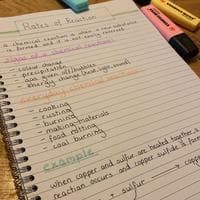 Rates of Reaction
A chemical reaction is when a new substance
is formed and it is not easily reversed.
signs of a chemical reaction:
- colour change
- precipitation
- gas given off/bubbles
- energy change (heat, light, sound)
everyday
- cooking
- rusting
- burning
- making materials
- food rotting
- coal burning
example
when copper and sulfur are heated together,
reaction occurs and copper sulfide is form
sulfur
copp